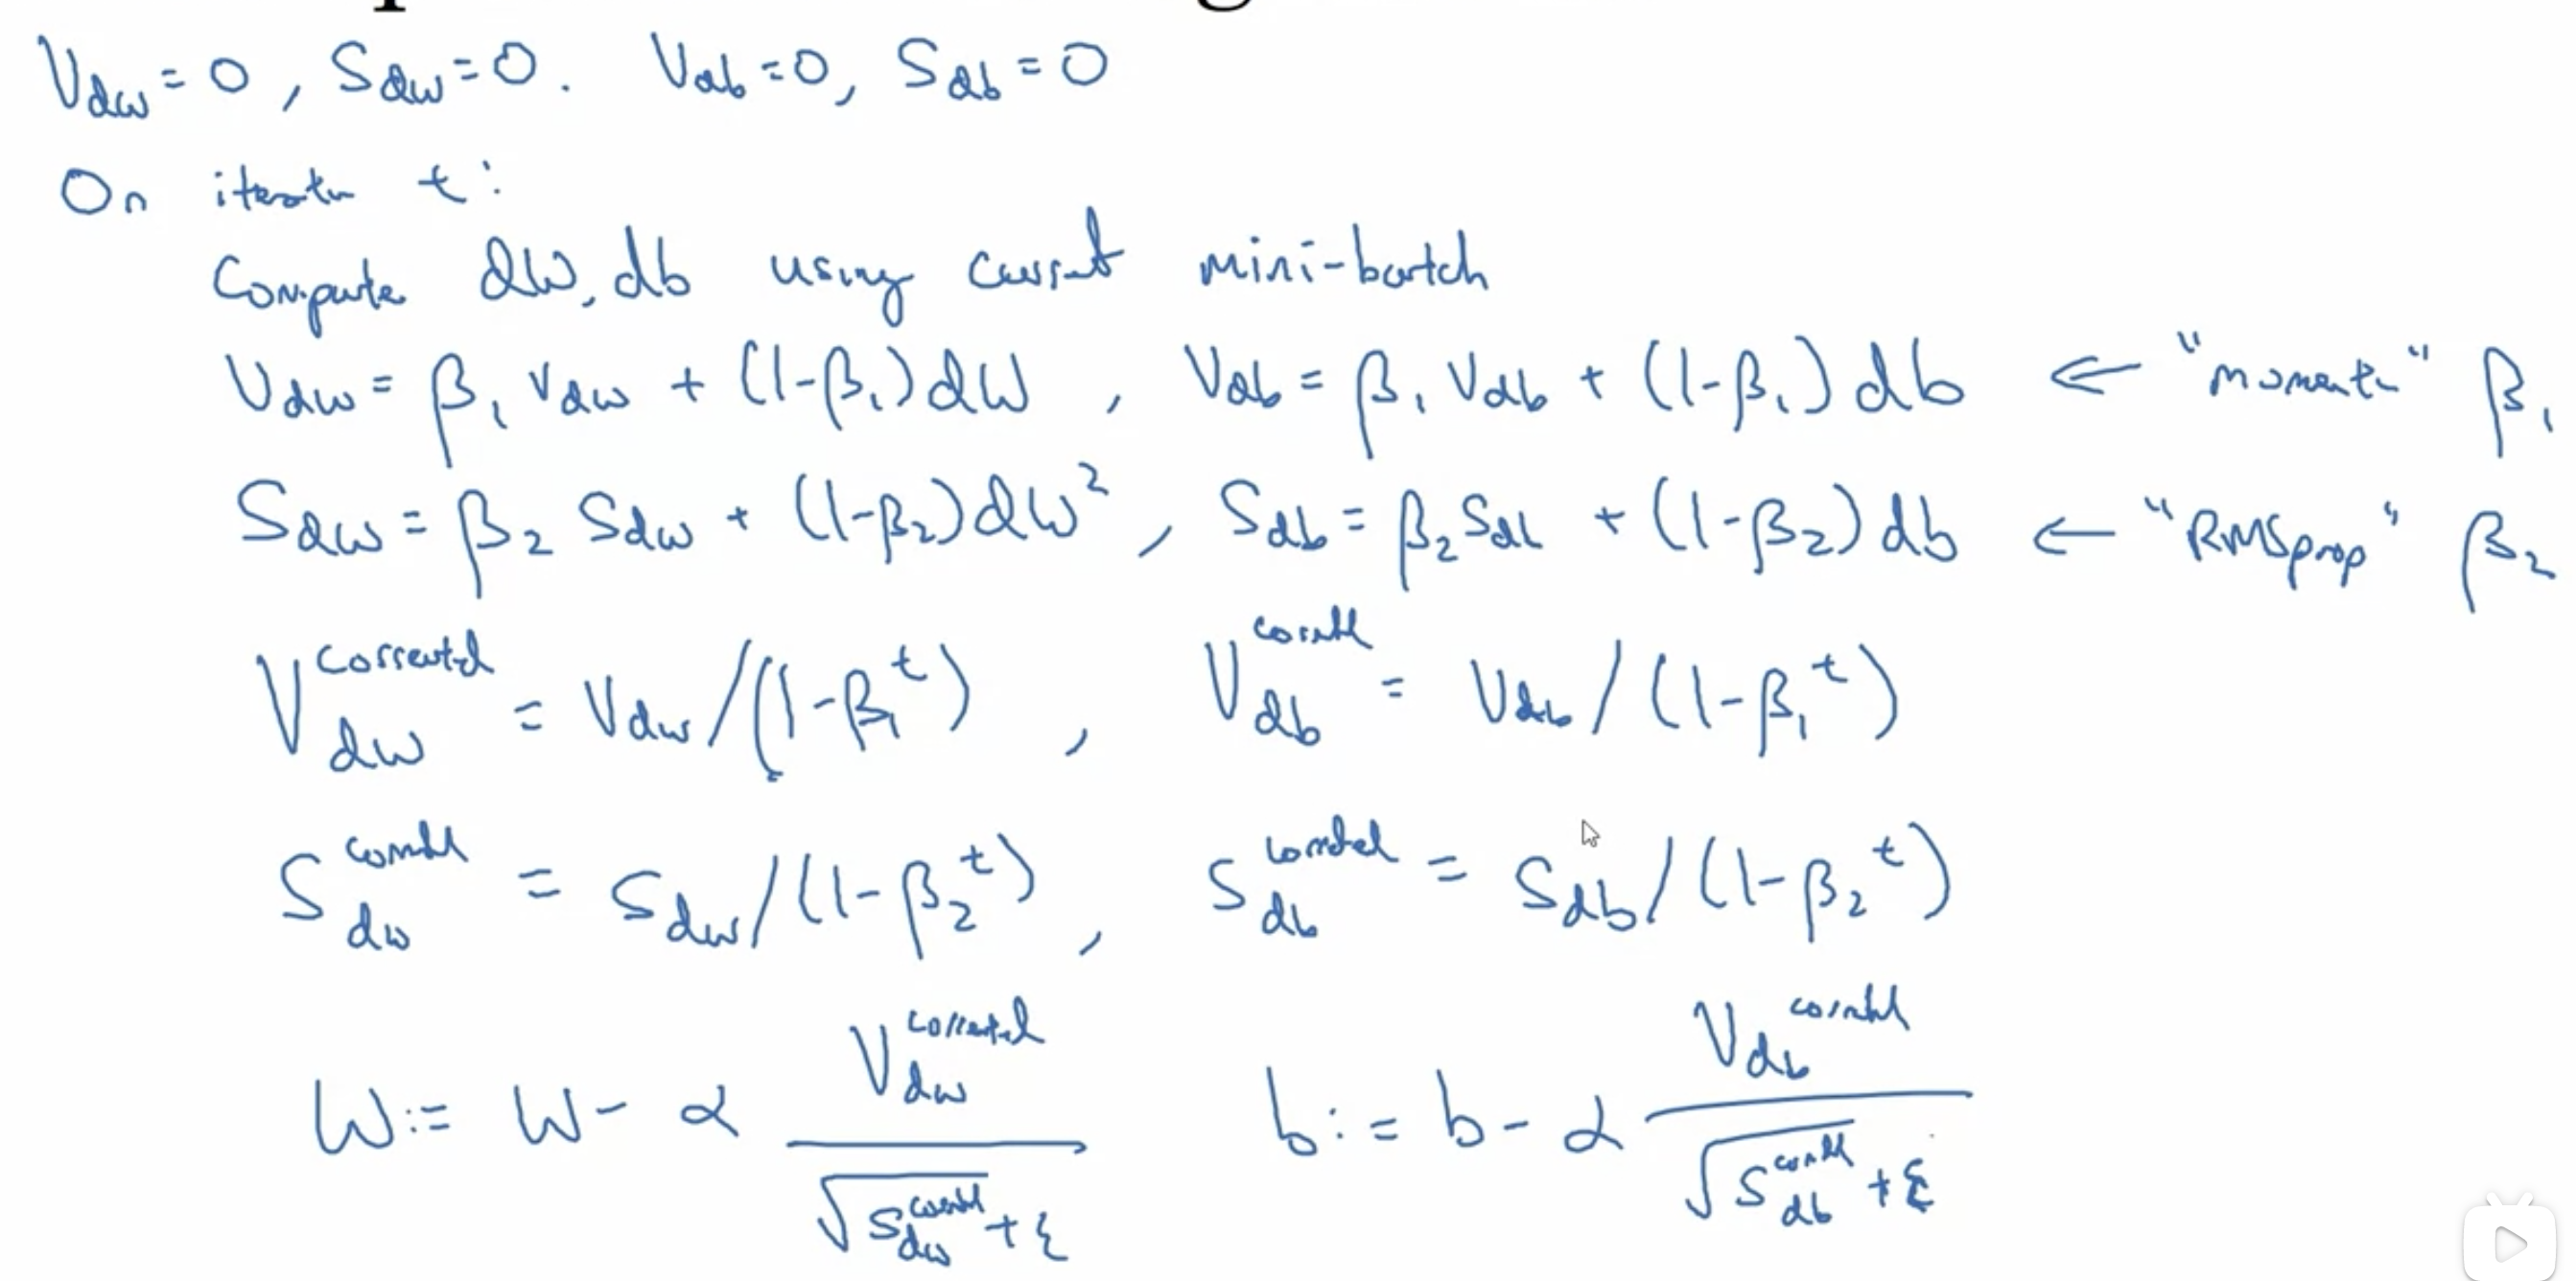 V_dw = 0, S_dw = 0. V_db = 0, S_db = 0
On iteration t:
Compute dW, db using current mini-batch
V_dw = β₁ V_dw + (1-β₁) dW, V_db = β₁ V_db + (1-β₁) db ← "momentum" β₁
S_dw = β₂ S_dw + (1-β₂) dW², S_db = β₂ S_db + (1-β₂) db ← "RMSprop" β₂
V_dw^corrected = V_dw / (1-β₁^t), V_db^corrected = V_db / (1-β₁^t)
S_dw^corrected = S_dw / (1-β₂^t), S_db^corrected = S_db / (1-β₂^t)
W := W - α V_dw^corrected / (√S_dw^corrected + ε) b := b - α V_db^corrected / (√S_db^corrected + ε)